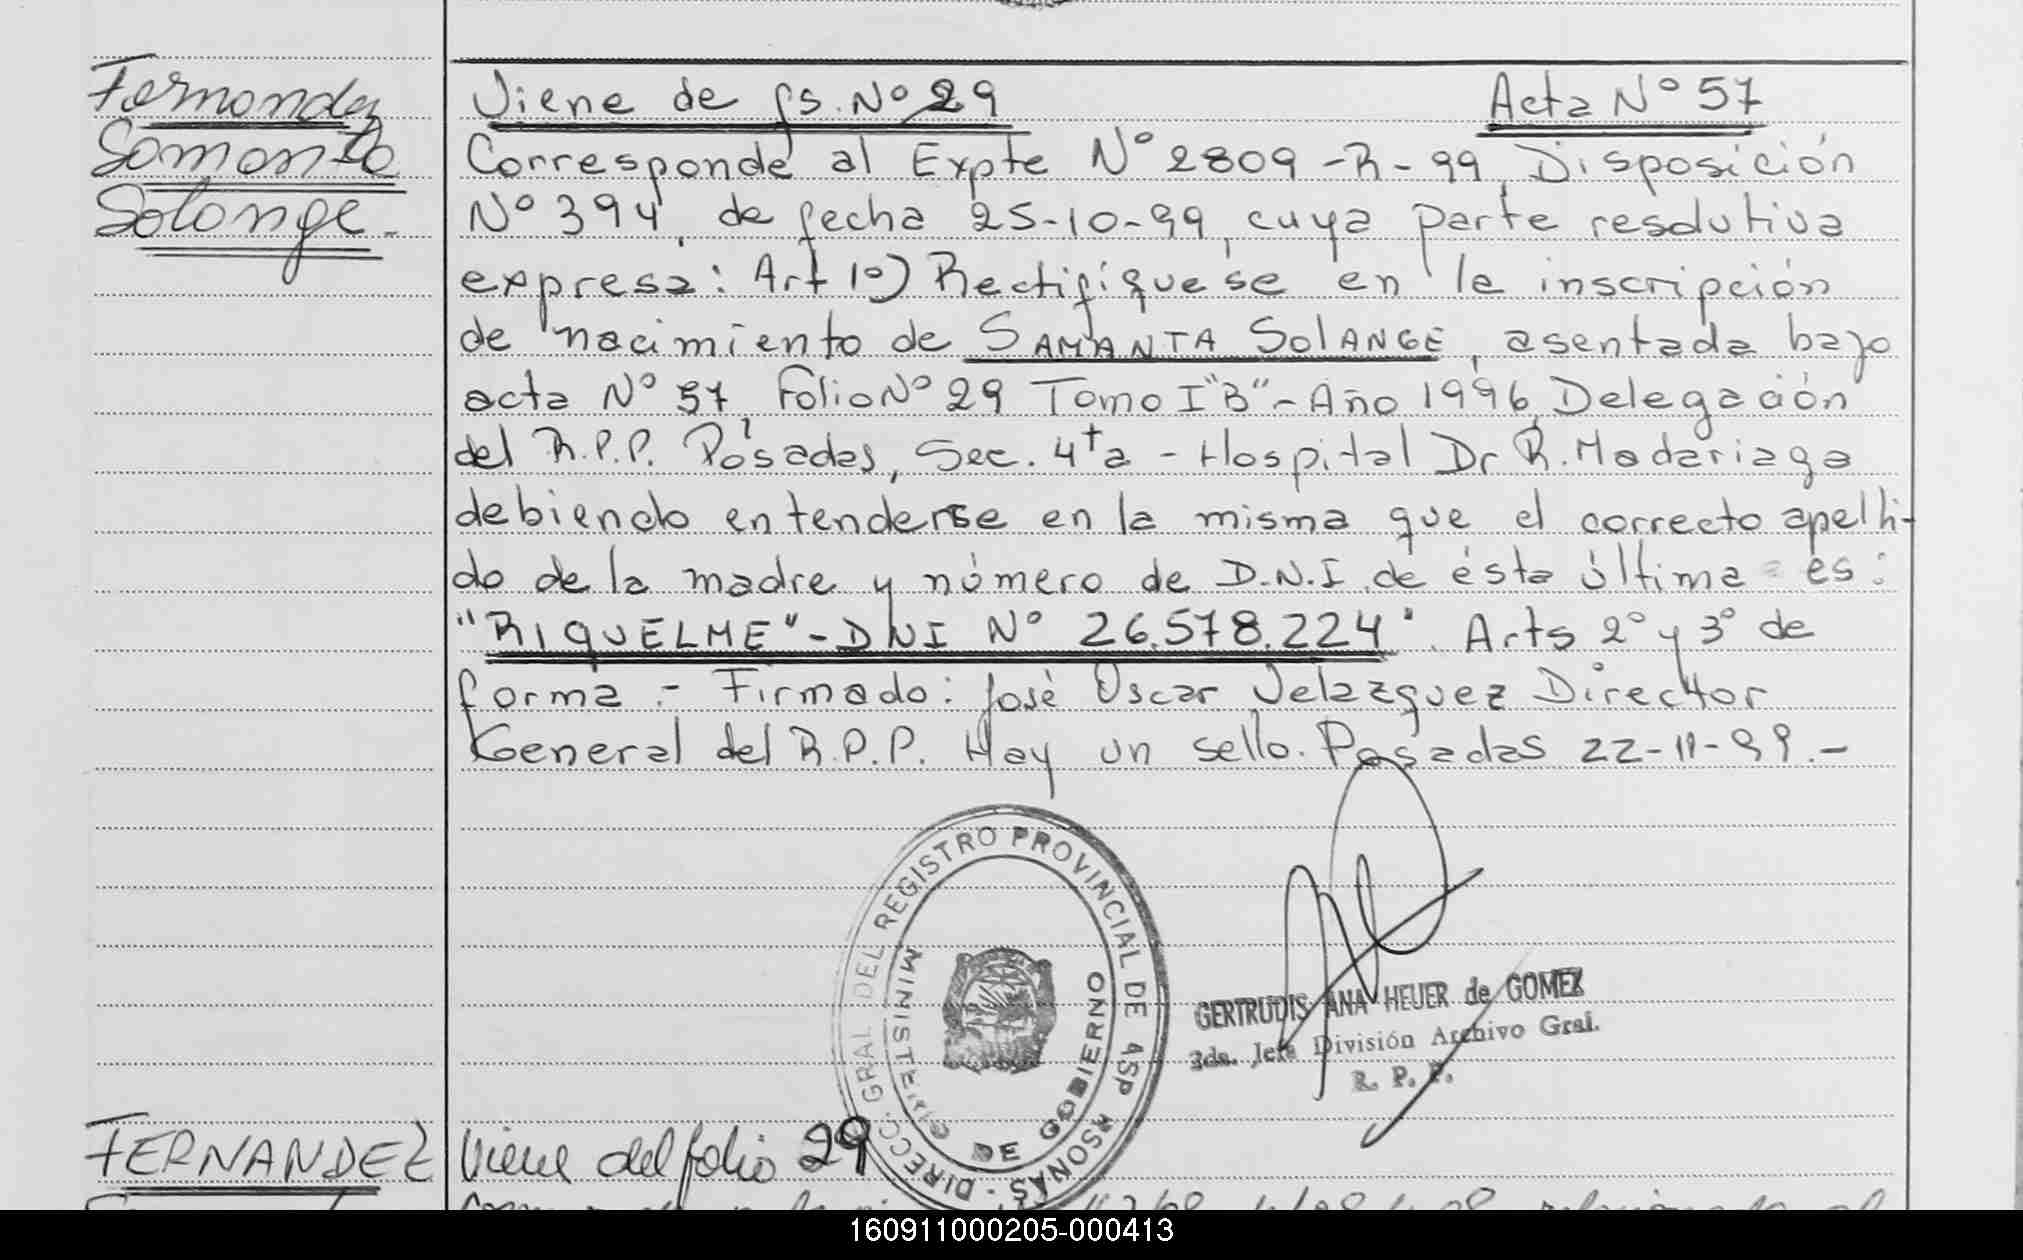 Fernandez
Samanta
Solange.-
Viene de fs. Nº 29
Acta Nº 57
Corresponde al Expte Nº 2809-R-99, Disposición
Nº 394, de fecha 25-10-99, cuya parte resolutiva
expresa: Art 1º) Rectifíquese en la inscripción
de nacimiento de SAMANTA SOLANGE, asentada bajo
acta Nº 57, Folio Nº 29 Tomo I "B" - Año 1996, Delegación
del R.P.P. Posadas, Sec. 4ta - Hospital Dr R. Madariaga
debiendo entenderse en la misma que el correcto apelli-
do de la madre y número de D.N.I. de ésta última es:
"RIQUELME" - DNI Nº 26.578.224". Arts 2º y 3º de
forma.- Firmado: José Oscar Velazquez Director
General del R.P.P. Hay un sello. Posadas 22-11-99.-
DIRECC. GRAL DEL REGISTRO PROVINCIAL DE PERSONAS
MINISTERIO DE GOBIERNO
GERTRUDIS ANA HEUER de GOMEZ
2da. Jefa División Archivo Gral.
R. P. P.
FERNANDEZ
Viene del folio 29
160911000205-000413